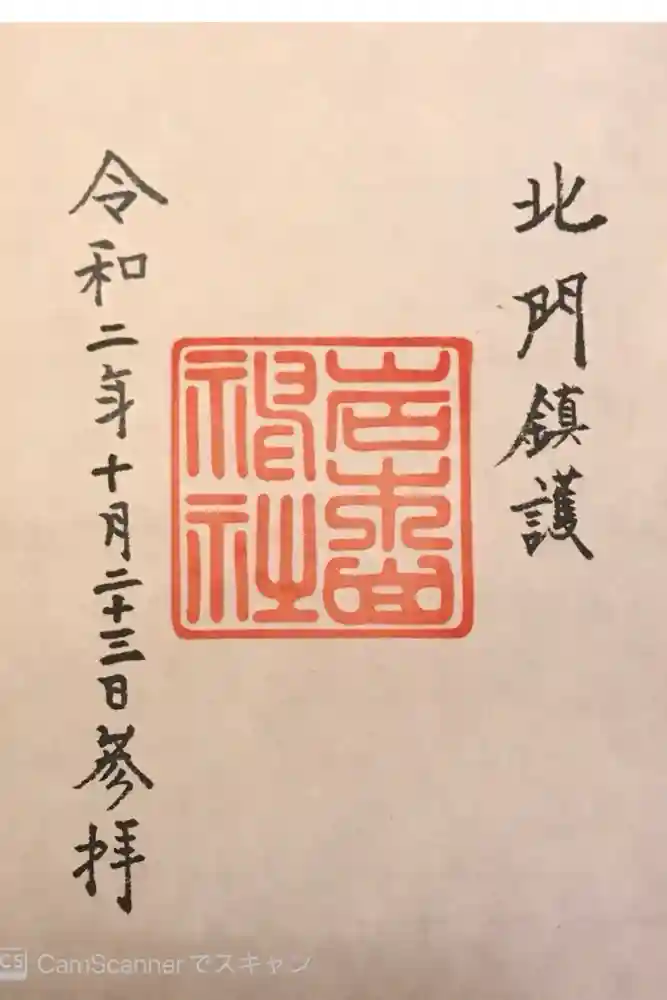 北門鎮護
岩木山
神社
令和二年十月二十三日参拝
CS CamScannerでスキャン